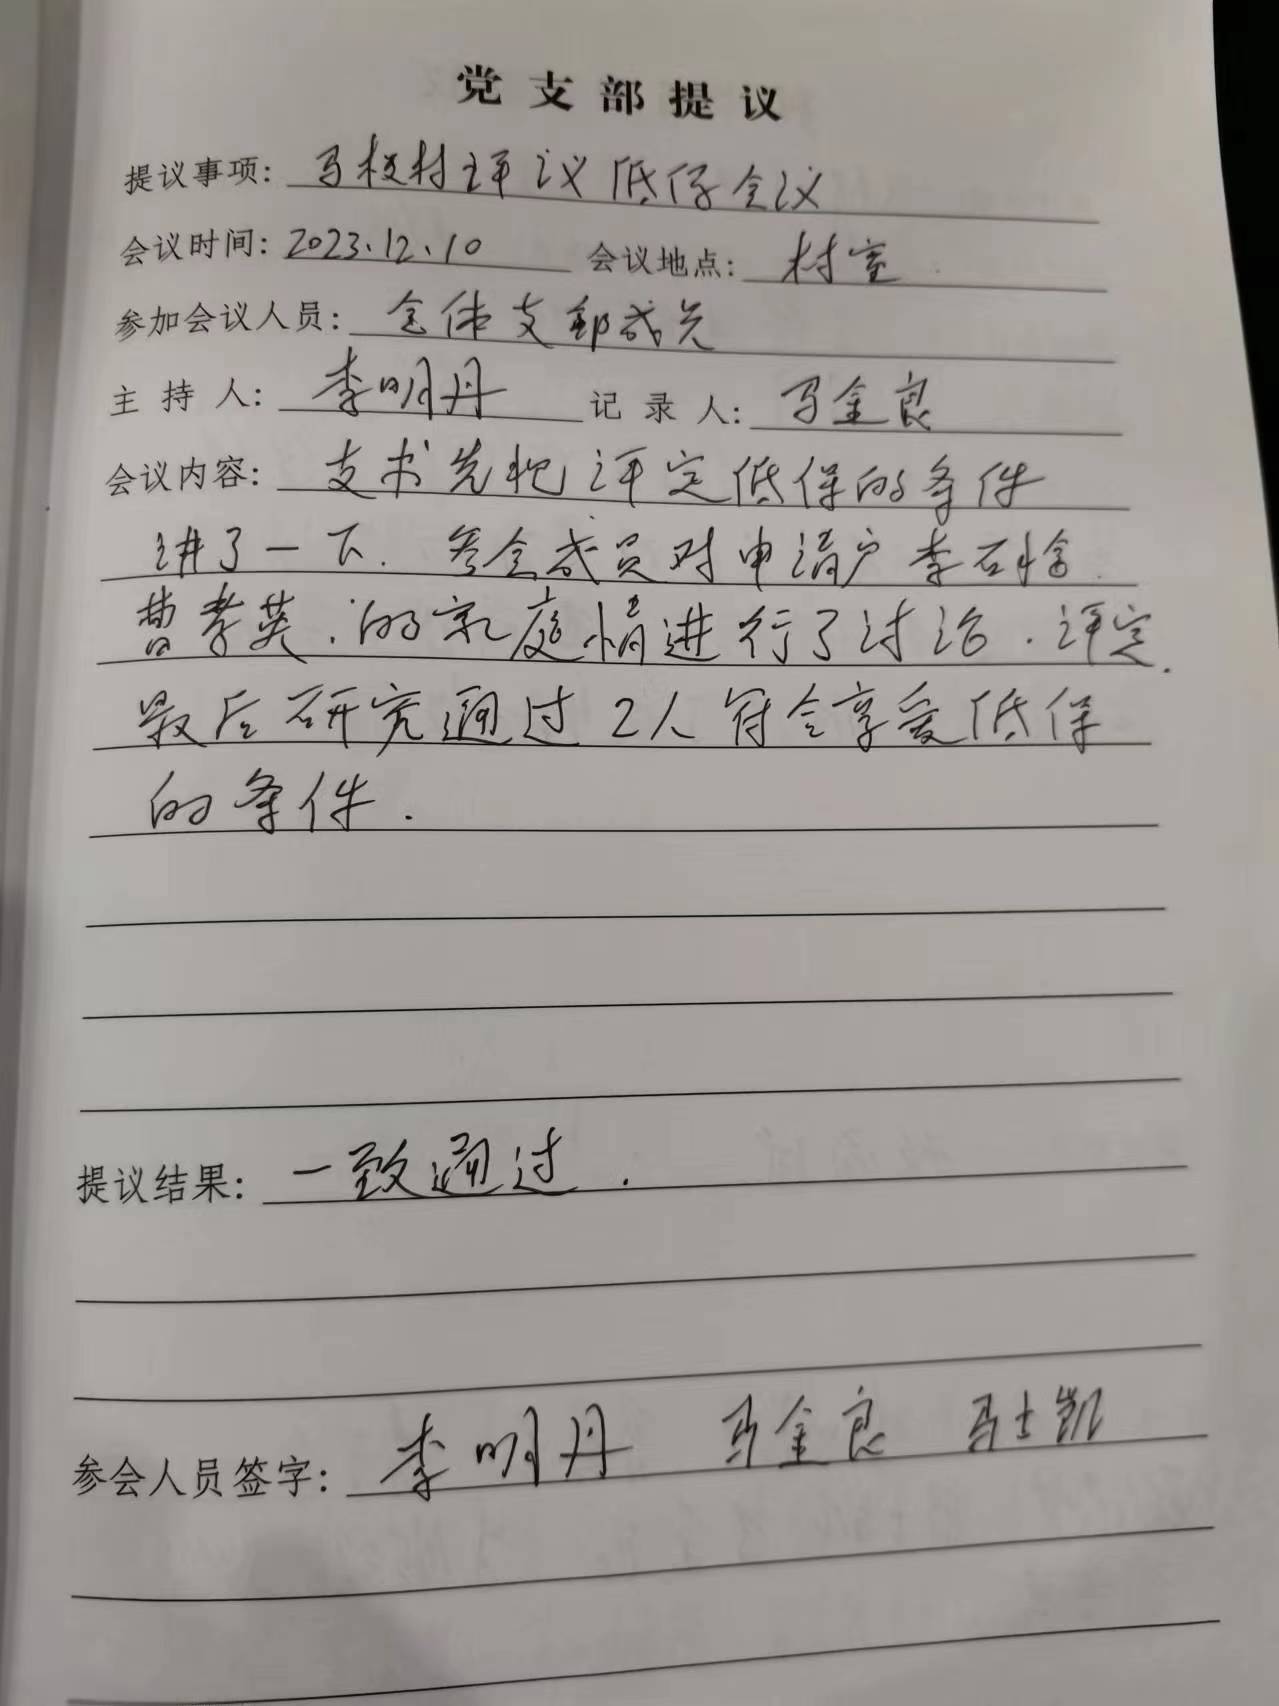 党支部提议
提议事项：马校村评议低保会议
会议时间：2023.12.10 会议地点：村室
参加会议人员：全体支部成员
主持人：李明丹 记录人：马金良
会议内容：支书先把评定低保的条件
讲了一下．参会成员对申请户李石
曹孝英．的家庭情进行了讨论．评定．
最后研究通过2人符合享受低保
的条件．
提议结果：一致通过．
参会人员签字：李明丹 马金良 马士凯